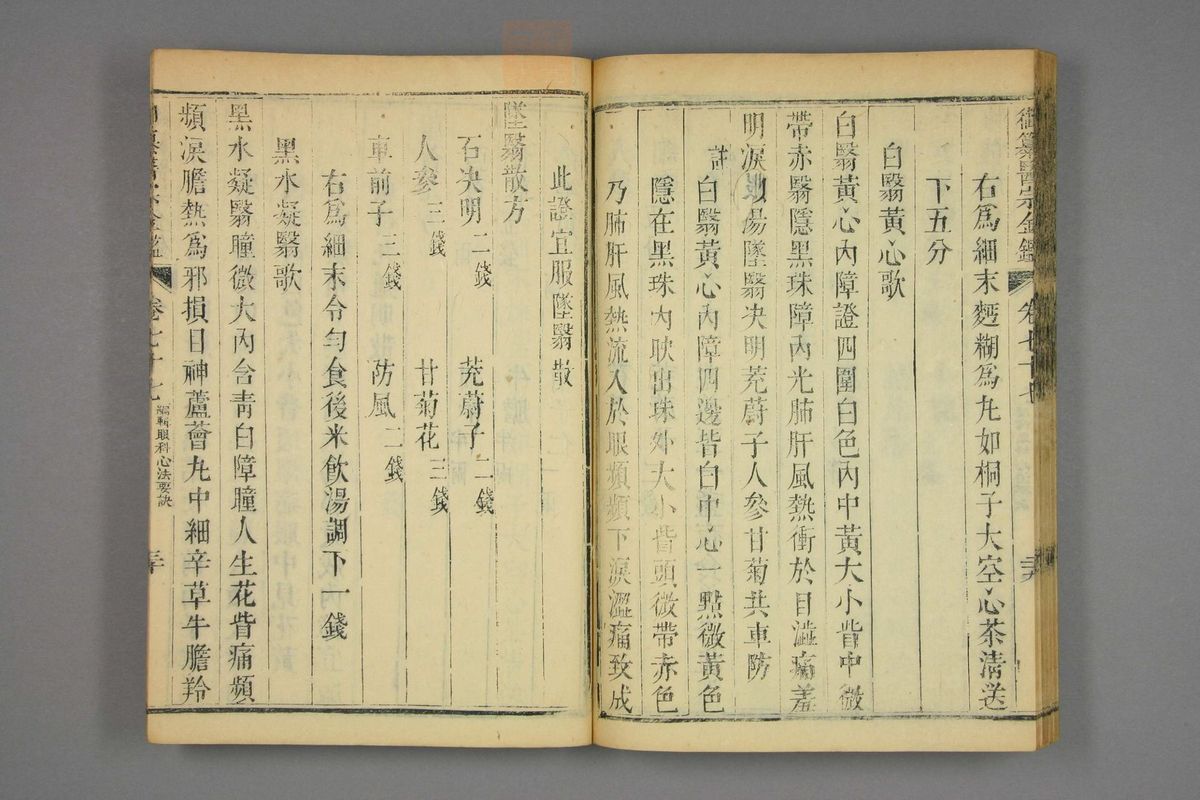 御纂醫宗金鑑 卷七十七
右爲細末麪糊爲丸如桐子大空心茶清送
下五分
白翳黃心歌
白翳黃心內障證四圍白色內中黃大小眥中微
帶赤翳隱黑珠障內光肺肝風熱衝於目澁痛羞
明淚湯墜翳决明茺蔚子人參甘菊共車防
註白翳黃心內障四邊皆白中心一點微黃色
隱在黑珠內映出珠外大小眥頭微帶赤色
乃肺肝風熱流入於眼頻頻下淚澀痛致成
此證宜服墜翳散
墜翳散方
石决明二錢 茺蔚子二錢
人參三錢 甘菊花三錢
車前子三錢 防風二錢
右爲細末令勻食後米飲湯調下一錢
黑水凝翳歌
黑水凝翳瞳微大內含青白障瞳人生花眥痛頻
頻淚膽熱爲邪損目神蘆薈丸中細辛草牛膽羚
卷七十七 編輯眼科心法要訣 三十